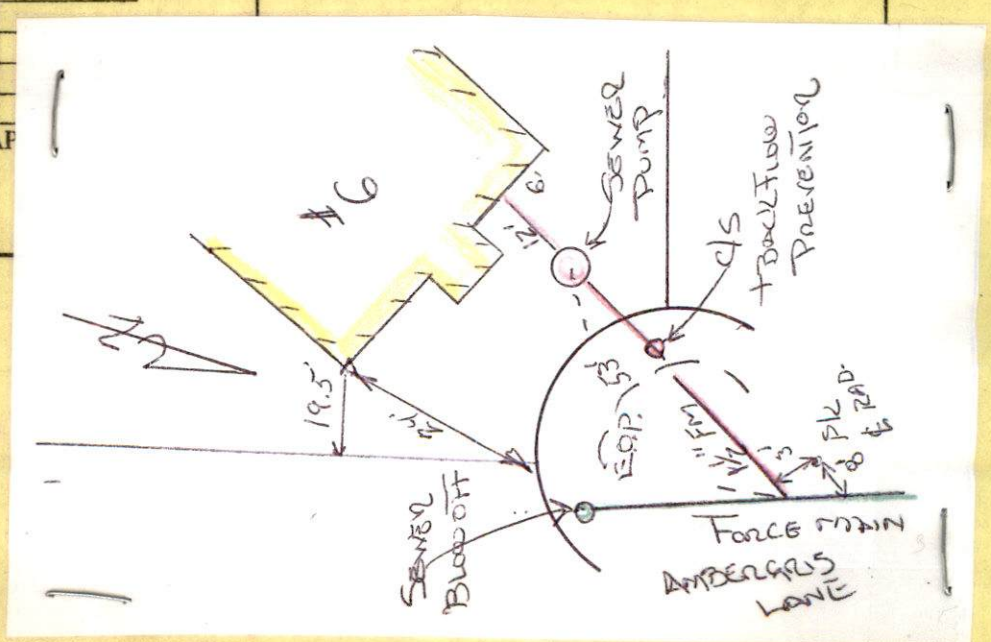 AP
#6
19.5'
6'
12'
SEWER
PUMP
C/S
+ BACKFLOW
PREVENTOR
E.O.P.
53'
1 1/2" FM
3'
8'
P/K
₵ RAD.
SEWER
BLOWOFF
FORCE MAIN
AMBERGRIS
LANE